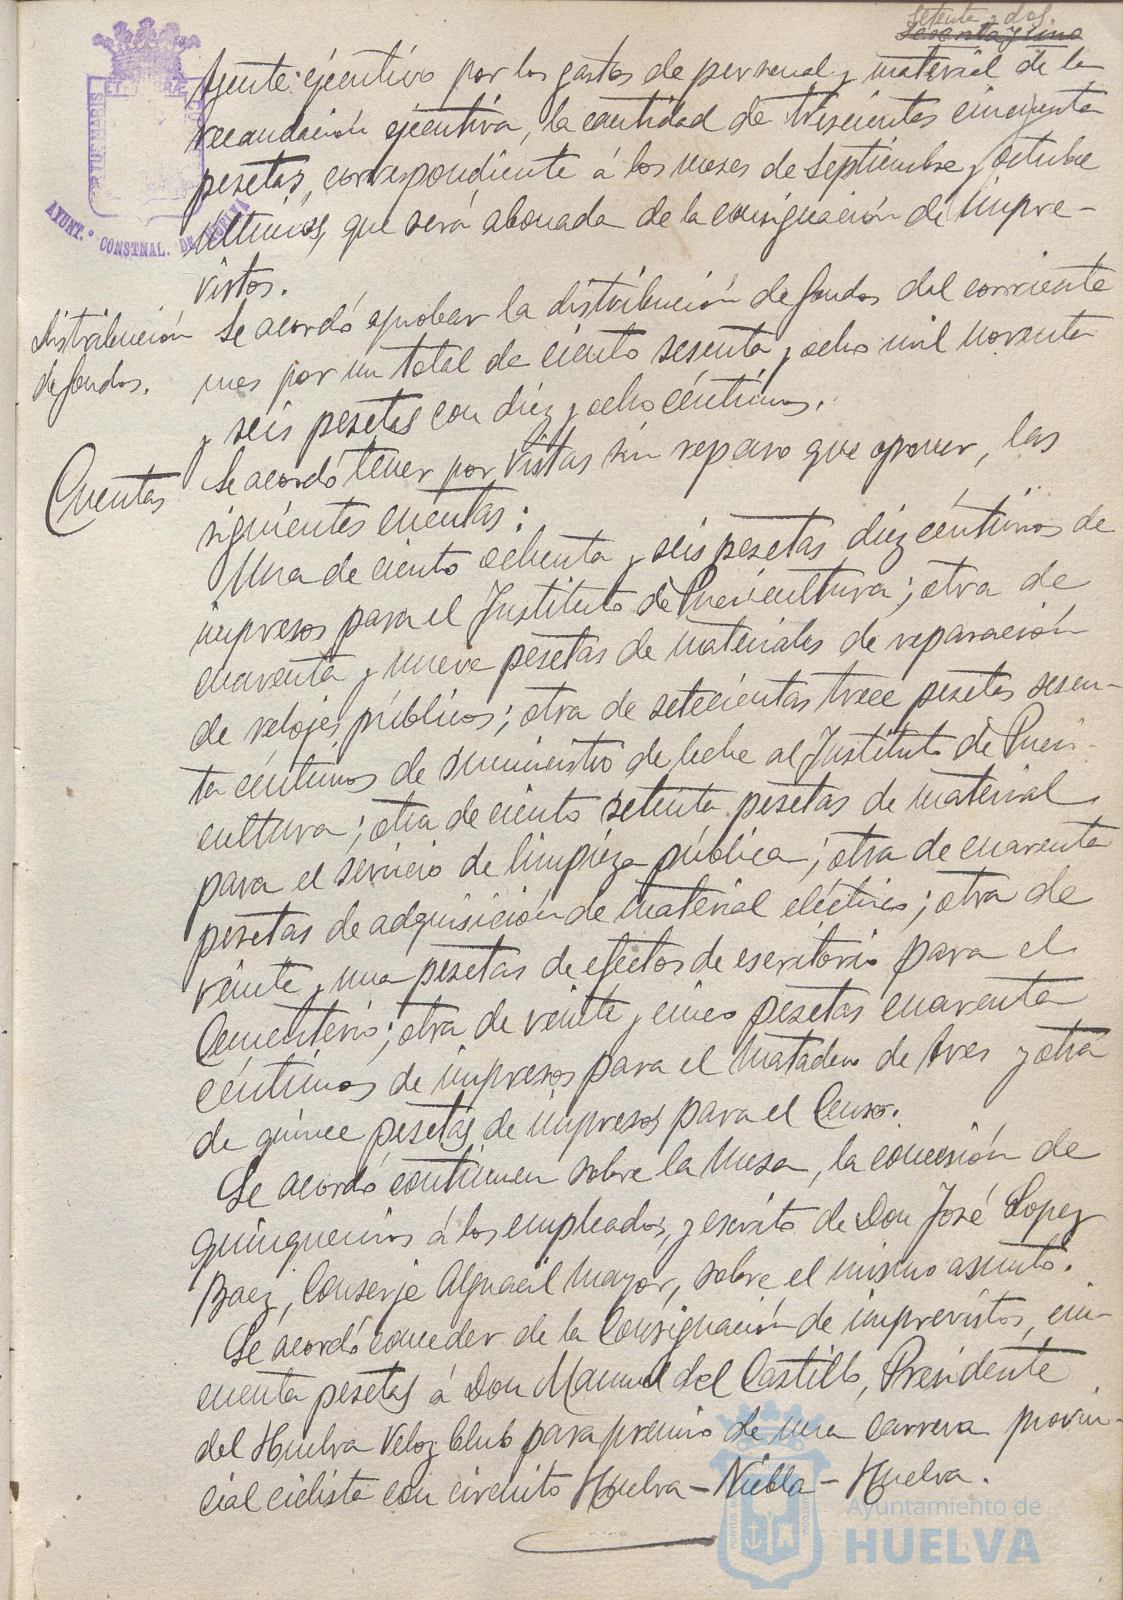 Setenta y dos.
Sesenta y uno
Agente ejecutivo por los gastos de personal y material de la
recaudación ejecutiva, la cantidad de trescientas cincuenta
pesetas, correspondiente á los meses de Septiembre y Octubre
ultimos, que será abonada de la consignación de Impre-
vistos.
Distribución
de fondos.
Se acordó aprobar la distribución de fondos del corriente
mes por un total de ciento sesenta y ocho mil noventa
y seis pesetas con diez y ocho céntimos.
Cuentas
Se acordó tener por vistas sin reparo que oponer, las
siguientes cuentas:
Una de ciento ochenta y seis pesetas diez céntimos de
impresos para el Instituto de Puericultura; otra de
cuarenta y nueve pesetas de materiales de reparación
de relojes públicos; otra de setecientas trece pesetas sesen-
ta céntimos de suministro de leche al Instituto de Pueri-
cultura; otra de ciento setenta pesetas de material
para el servicio de limpieza pública; otra de cuarenta
pesetas de adquisición de material eléctrico; otra de
veinte y una pesetas de efectos de escritorio para el
Cementerio; otra de veinte y cinco pesetas cuarenta
céntimos de impresos para el Matadero de Aves y otra
de quince pesetas de impresos para el Censo.
Se acordó continuen sobre la Mesa, la concesión de
quinquenios á los empleados, y escrito de Don José Lopez
Baez, Conserje Alguacil Mayor, sobre el mismo asunto.
Se acordó conceder de la Consignación de imprevistos, cin-
cuenta pesetas á Don Manuel del Castillo, Presidente
del Huelva Veloz Club para premio de una Carrera provin-
cial ciclista con circuito Huelva-Niebla-Huelva.
AYUNT.º CONSTNAL. DE HUELVA
Ayuntamiento de
HUELVA